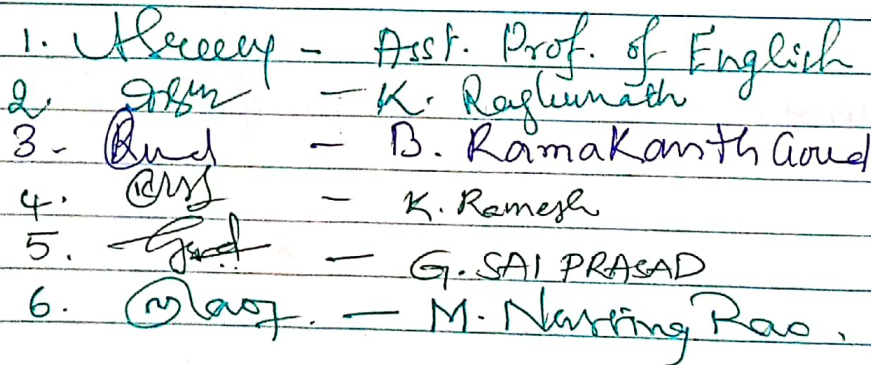 1. - Asst. Prof. of English
2. - K. Raghunath
3 - - B. Ramakanth Goud
4. - K. Ramesh
5. - G. SAI PRASAD
6. - M. Narsing Rao.